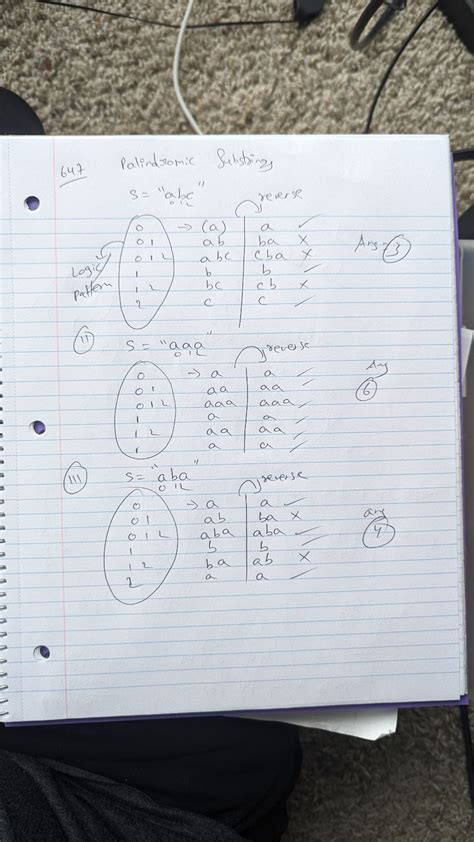 647 Palindromic Substrings
S = "abc"
012
reverse
0 → (a) a ✓
01 ab ba ×
012 abc cba ×
1 b b ✓
12 bc cb ×
2 c c ✓
Logic Pattern
Ans = 3
II S = "aaa"
012
reverse
0 → a a ✓
01 aa aa ✓
012 aaa aaa ✓
1 a a ✓
12 aa aa ✓
1 a a ✓
Ans
6
III S = "aba"
012
reverse
0 → a a ✓
01 ab ba ×
012 aba aba ✓
1 b b ✓
12 ba ab ×
2 a a ✓
ans
4